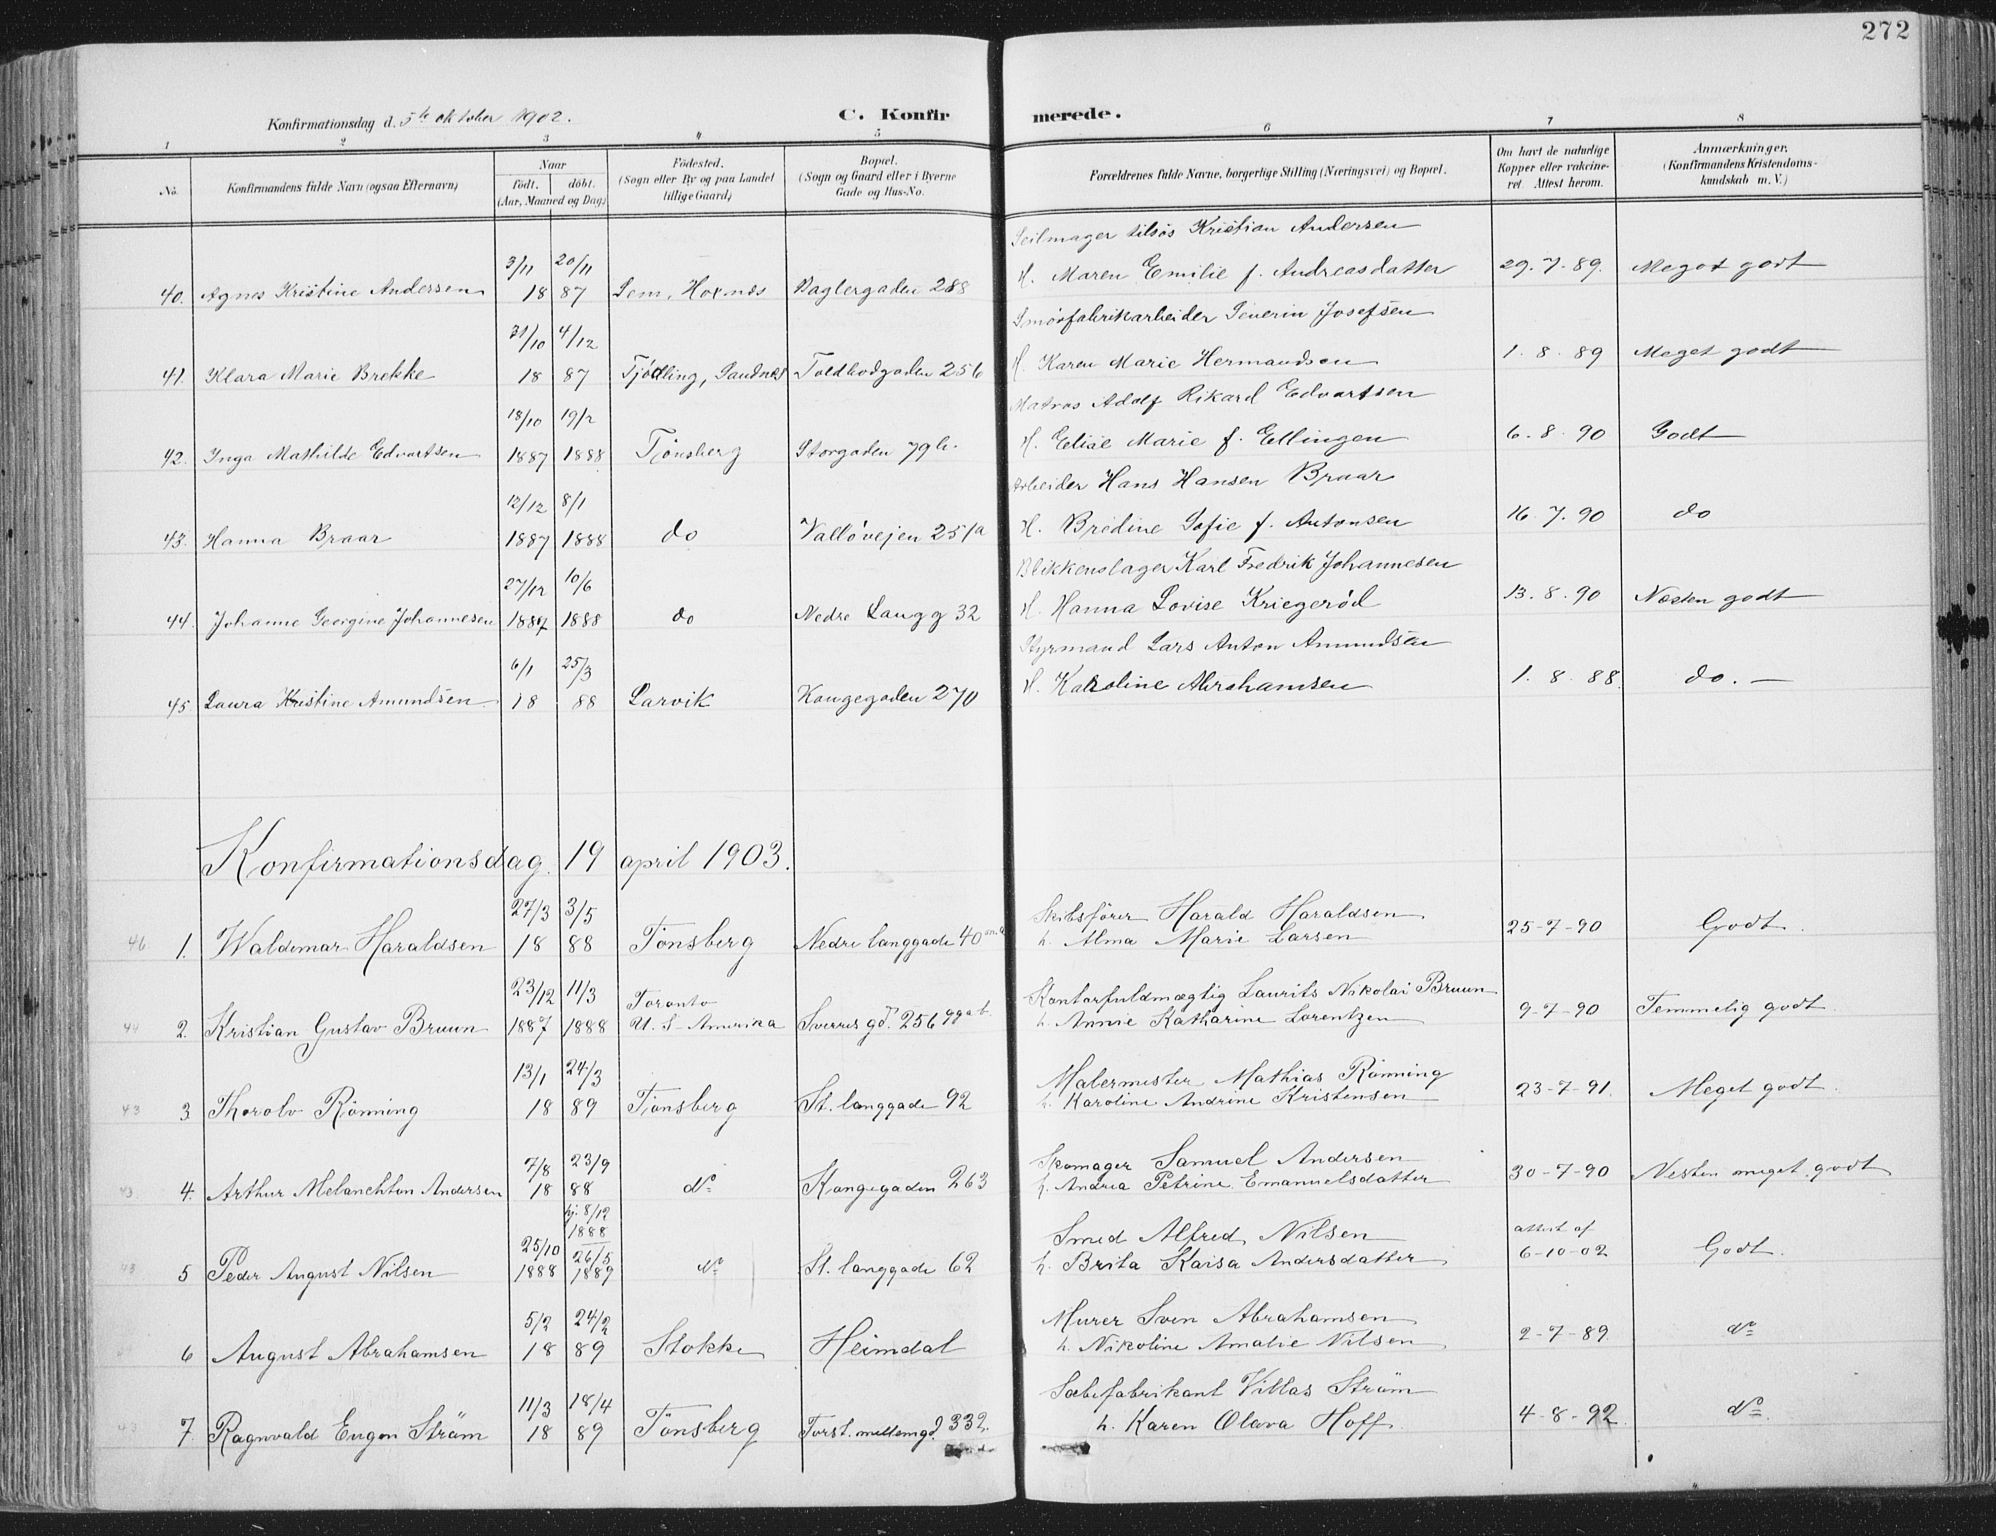 272
Konfirmationsdag d. 5te oktober 1902. C. Konfirmerede.
1 2 3 4 5 6 7 8
No. Konfirmandens fulde Navn (ogsaa Efternavn)
Naar
født. døbt.
(Aar, Maaned og Dag)
Fødested.
(Sogn eller By og paa Landet
tillige Gaard)
Bopæl.
(Sogn og Gaard eller i Byerne
Gade og Hus-No.
Forældrenes fulde Navne, borgerlige Stilling (Næringsvei) og Bopæl.
Om havt de naturlige
Kopper eller vakcine-
ret. Attest herom.
Anmærkninger.
(Konfirmandens Kristendoms-
kundskab m. V.)
Seilmager Kristian Andersen
3/11 20/11 H. Maren Emilie f. Andreasdatter 29.7.89. Meget godt
40. Agnes Kristine Andersen 18 87 Sem, Baglergaden 288
Smørfabrikarbeider Severin Josefsen
31/10 4/12 H. Karen Marie Hermandsen 1.8.89 Meget godt
41. Klara Marie Brekke 18 87 Tjødling, Sandnes Toldbodgaden 256
Matros Adolf Rikard Edvartsen
18/10 19/2 H. Elise Marie f. Ellingsen 6.8.90 Godt
42. Inga Mathilde Edvartsen 1887 1888 Tønsberg Storgaden 79b.
Arbeider Hans Hansen Braar
12/12 8/1 H. Bredine Sofie f. Antonsen 16.7.90 do
43. Hanna Braar 1887 1888 do Valløvejen 251a
Blikkenslager Karl Fredrik Johannesen
27/12 10/6 H. Hanna Lovise Kriegerød 13.8.90 Næsten godt
44. Johanne Georgine Johannesen 1887 1888 do Nedre Langg 32
Styrmand Lars Anton Amundsen
6/1 25/3 H. Karoline Abrahamsen 1.8.88. do.
45 Laura Kristine Amundsen 18 88 Larvik Kongegaden 270
Konfirmationsdag. 19 april 1903.
27/3 3/5 Skibsfører Harald Haraldsen 25-7-90 Godt.
46 1. Waldemar Haraldsen 18 88 Tønsberg Nedre langgade 40 h. Alma Marie Larsen
23/12 11/3 Toronto Kontorfuldmægtig Laurits Nikolai Bruun 9-7-90 Temmelig godt.
44 2. Kristian Gustav Bruun 1887 1888 U. S. Amerika Sverresgd. 256 h. Annie Katharine Lorentzen
13/1 24/3 Malermester Mathias Rønning 23-7-91. Meget godt.
43 3 Thorolv Rønning 18 89 Tønsberg St. langgade 92 h. Karoline Andrine Kristensen
7/8 23/9 Skomager Samuel Andersen 30-7-90 Nesten meget godt
43 4. Arthur Melanchton Andersen 18 88 do Kongegaden 263 h. Andrea Petrine Emanuelsdatter
hj. 8/12
1888
25/10 26/5 Smed Alfred Nilsen attest af 6-10-02 Godt.
43 5 Peder August Nilsen 1888 1889 do St. langgade 62 h. Brita Kaisa Andersdatter
5/2 24/2 Murer Sven Abrahamsen 2-7-89 do
6 August Abrahamsen 18 89 Stokke Heimdal h. Nikoline Amalie Nilsen
11/3 18/4 Sæbefabrikant Villas Strøm 4-8-92. do
43 7. Ragnvald Eugen Strøm 18 89 Tønsberg Torst. mellemgd 332. h. Karen Olava Hoff.